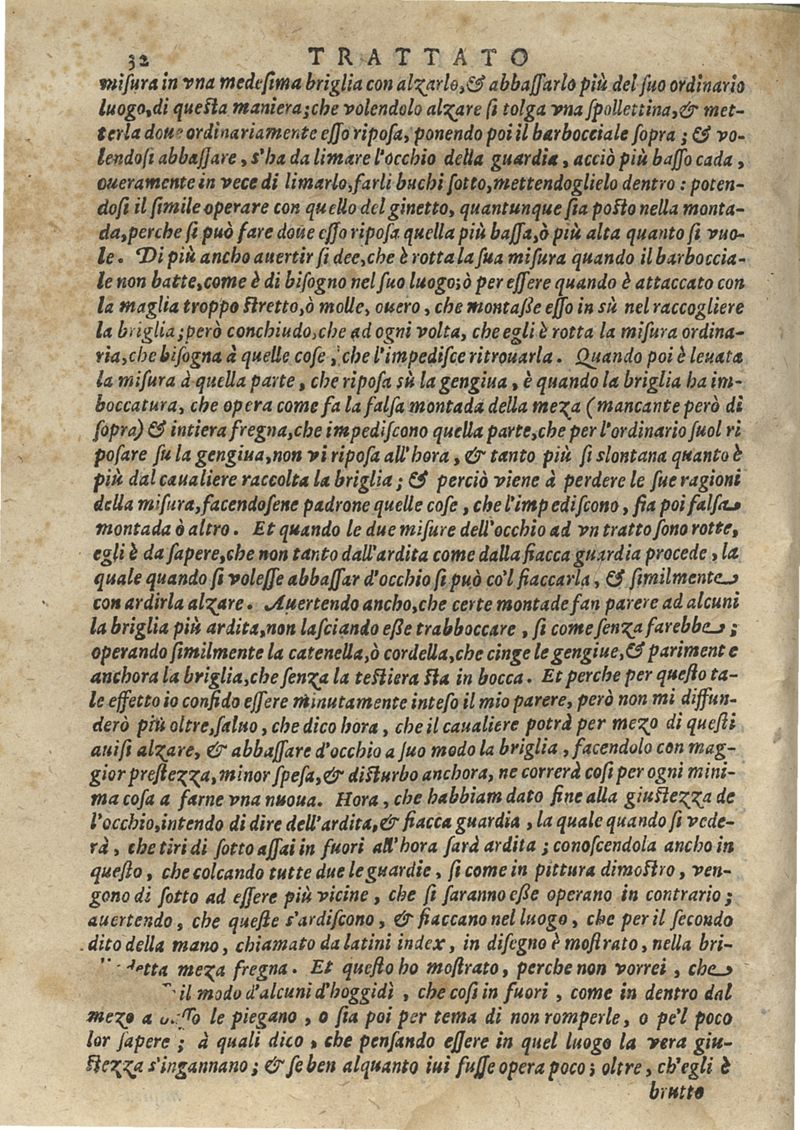 32 TRATTATO
misura in vna medesima briglia con alzarlo,& abbassarlo più del suo ordinario
luogo,di questa maniera;che volendolo alzare si tolga vna spollettina,& met-
terla doue ordinariamente esso riposa, ponendo poi il barbocciale sopra ; & vo-
lendosi abbassare , s'ha da limare l'occhio della guardia , acciò più basso cada ,
oueramente in vece di limarlo,farli buchi sotto,mettendoglielo dentro : poten-
dosi il simile operare con quello del ginetto, quantunque sia posto nella monta-
da,perche si può fare doue esso riposa quella più bassa,ò più alta quanto si vuo-
le . Di più ancho auertir si dee,che è rotta la sua misura quando il barboccia-
le non batte,come è di bisogno nel suo luogo;ò per essere quando è attaccato con
la maglia troppo stretto,ò molle, ouero , che montasse esso in sù nel raccogliere
la briglia;però conchiudo,che ad ogni volta, che egli è rotta la misura ordina-
ria,che bisogna à quelle cose , che l'impedisce ritrouarla . Quando poi è leuata
la misura à quella parte , che riposa sù la gengiua , è quando la briglia ha im-
boccatura, che opera come fa la falsa montada della meza (mancante però di
sopra) & intiera fregna,che impediscono quella parte,che per l'ordinario suol ri
posare su la gengiua,non vi riposa all'hora , & tanto più si slontana quanto è
più dal caualiere raccolta la briglia ; & perciò viene à perdere le sue ragioni
della misura,facendosene padrone quelle cose , che l'impediscono, sia poi falsa
montada ò altro . Et quando le due misure dell'occhio ad vn tratto sono rotte,
egli è da sapere,che non tanto dall'ardita come dalla fiacca guardia procede , la
quale quando si volesse abbassar d'occhio si può co'l fiaccarla , & similmente
con ardirla alzare . Auertendo ancho,che certe montade fan parere ad alcuni
la briglia più ardita,non lasciando esse trabboccare , si come senza farebbe ;
operando similmente la catenella,ò cordella,che cinge le gengiue,& pariment e
anchora la briglia,che senza la testiera sta in bocca . Et perche per questo ta-
le effetto io confido essere minutamente inteso il mio parere, però non mi diffun-
derò più oltre,saluo , che dico hora , che il caualiere potrà per mezo di questi
auisi alzare, & abbassare d'occhio a suo modo la briglia , facendolo con mag-
gior prestezza,minor spesa,& disturbo anchora, ne correrà cosi per ogni mini-
ma cosa a farne vna nuoua . Hora , che habbiam dato fine alla giustezza de
l'occhio,intendo di dire dell'ardita,& fiacca guardia , la quale quando si vede-
rà , che tiri di sotto assai in fuori all'hora sarà ardita ; conoscendola ancho in
questo , che colcando tutte due le guardie , si come in pittura dimostro , ven-
gono di sotto ad essere più vicine , che si saranno esse operano in contrario ;
auertendo , che queste s'ardiscono , & fiaccano nel luogo , che per il secondo
dito della mano , chiamato da latini index , in disegno è mostrato , nella bri-
detta meza fregna . Et questo ho mostrato , perche non vorrei , che
il modo d'alcuni d'hoggidì , che cosi in fuori , come in dentro dal
mezo a le piegano , o sia poi per tema di non romperle, o pe'l poco
lor sapere ; à quali dico , che pensando essere in quel luogo la vera giu-
stezza s'ingannano ; & se ben alquanto iui fusse opera poco ; oltre , ch'egli è
brutto